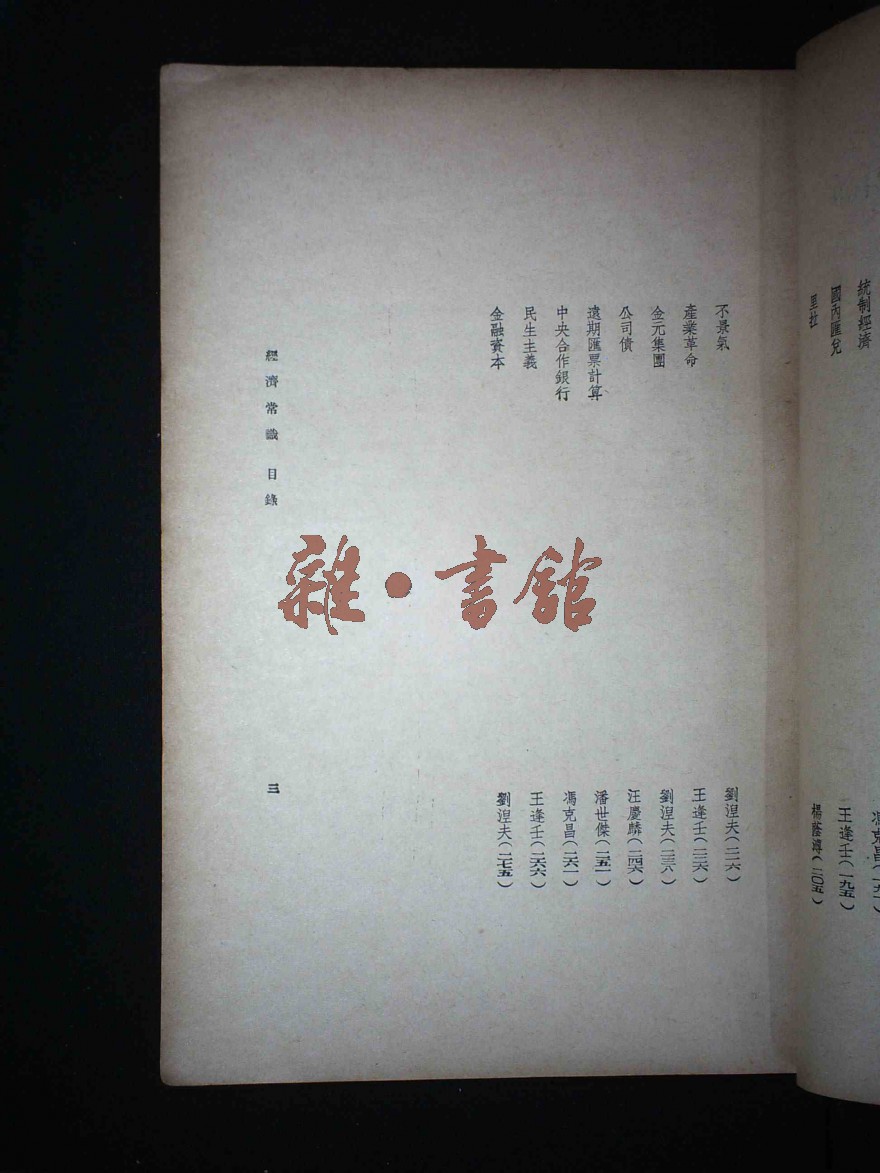 統制經濟
國內匯兌 王逢壬（一九五）
里拉 楊蔭溥（二〇五）
不景氣 劉涅夫（二一六）
產業革命 王逢壬（二二六）
金元集團 劉涅夫（二三六）
公司債 汪慶麟（二四六）
遠期匯票計算 潘世傑（二五一）
中央合作銀行 馮克昌（二六一）
民生主義 王逢壬（二六六）
金融資本 劉涅夫（二七五）
經濟常識 目錄 三
雜·書館